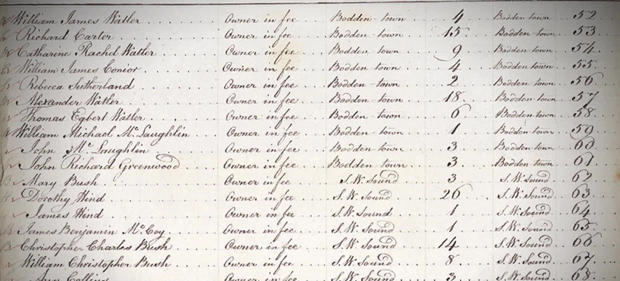 William James Watler . . . . Owner in fee . . . . Bodden town . . . . 4 . . . . Bodden town . . . . 52
Richard Carter . . . . Owner in fee . . . . Bodden town . . . . 15 . . . . Bodden town . . . . 53
Catharine Rachel Watler . . . . Owner in fee . . . . Bodden town . . . . 9 . . . . Bodden town . . . . 54
William James Conor . . . . Owner in fee . . . . Bodden town . . . . 4 . . . . Bodden town . . . . 55
Rebecca Sutherland . . . . Owner in fee . . . . Bodden town . . . . 2 . . . . Bodden town . . . . 56
Alexander Watler . . . . Owner in fee . . . . Bodden town . . . . 18 . . . . Bodden town . . . . 57
Thomas Egbert Watler . . . . Owner in fee . . . . Bodden town . . . . 6 . . . . Bodden town . . . . 58
William Michael McLaughlin . . . . Owner in fee . . . . Bodden town . . . . 1 . . . . Bodden town . . . . 59
John McLaughlin . . . . Owner in fee . . . . Bodden town . . . . 3 . . . . Bodden town . . . . 60
John Richard Greenwood . . . . Owner in fee . . . . Bodden town . . . . 3 . . . . Bodden town . . . . 61
Mary Bush . . . . Owner in fee . . . . S.W. Sound . . . . 3 . . . . S.W. Sound . . . . 62
Dorothy Hind . . . . Owner in fee . . . . S.W. Sound . . . . 26 . . . . S.W. Sound . . . . 63
James Hind . . . . Owner in fee . . . . S.W. Sound . . . . 1 . . . . S.W. Sound . . . . 64
James Benjamin McCoy . . . . Owner in fee . . . . S.W. Sound . . . . 1 . . . . S.W. Sound . . . . 65
Christopher Charles Bush . . . . Owner in fee . . . . S.W. Sound . . . . 14 . . . . S.W. Sound . . . . 66
William Christopher Bush . . . . Owner in fee . . . . S.W. Sound . . . . 8 . . . . S.W. Sound . . . . 67
Collins . . . . Owner in fee . . . . S.W. Sound . . . . 3 . . . . S.W. Sound . . . . 68